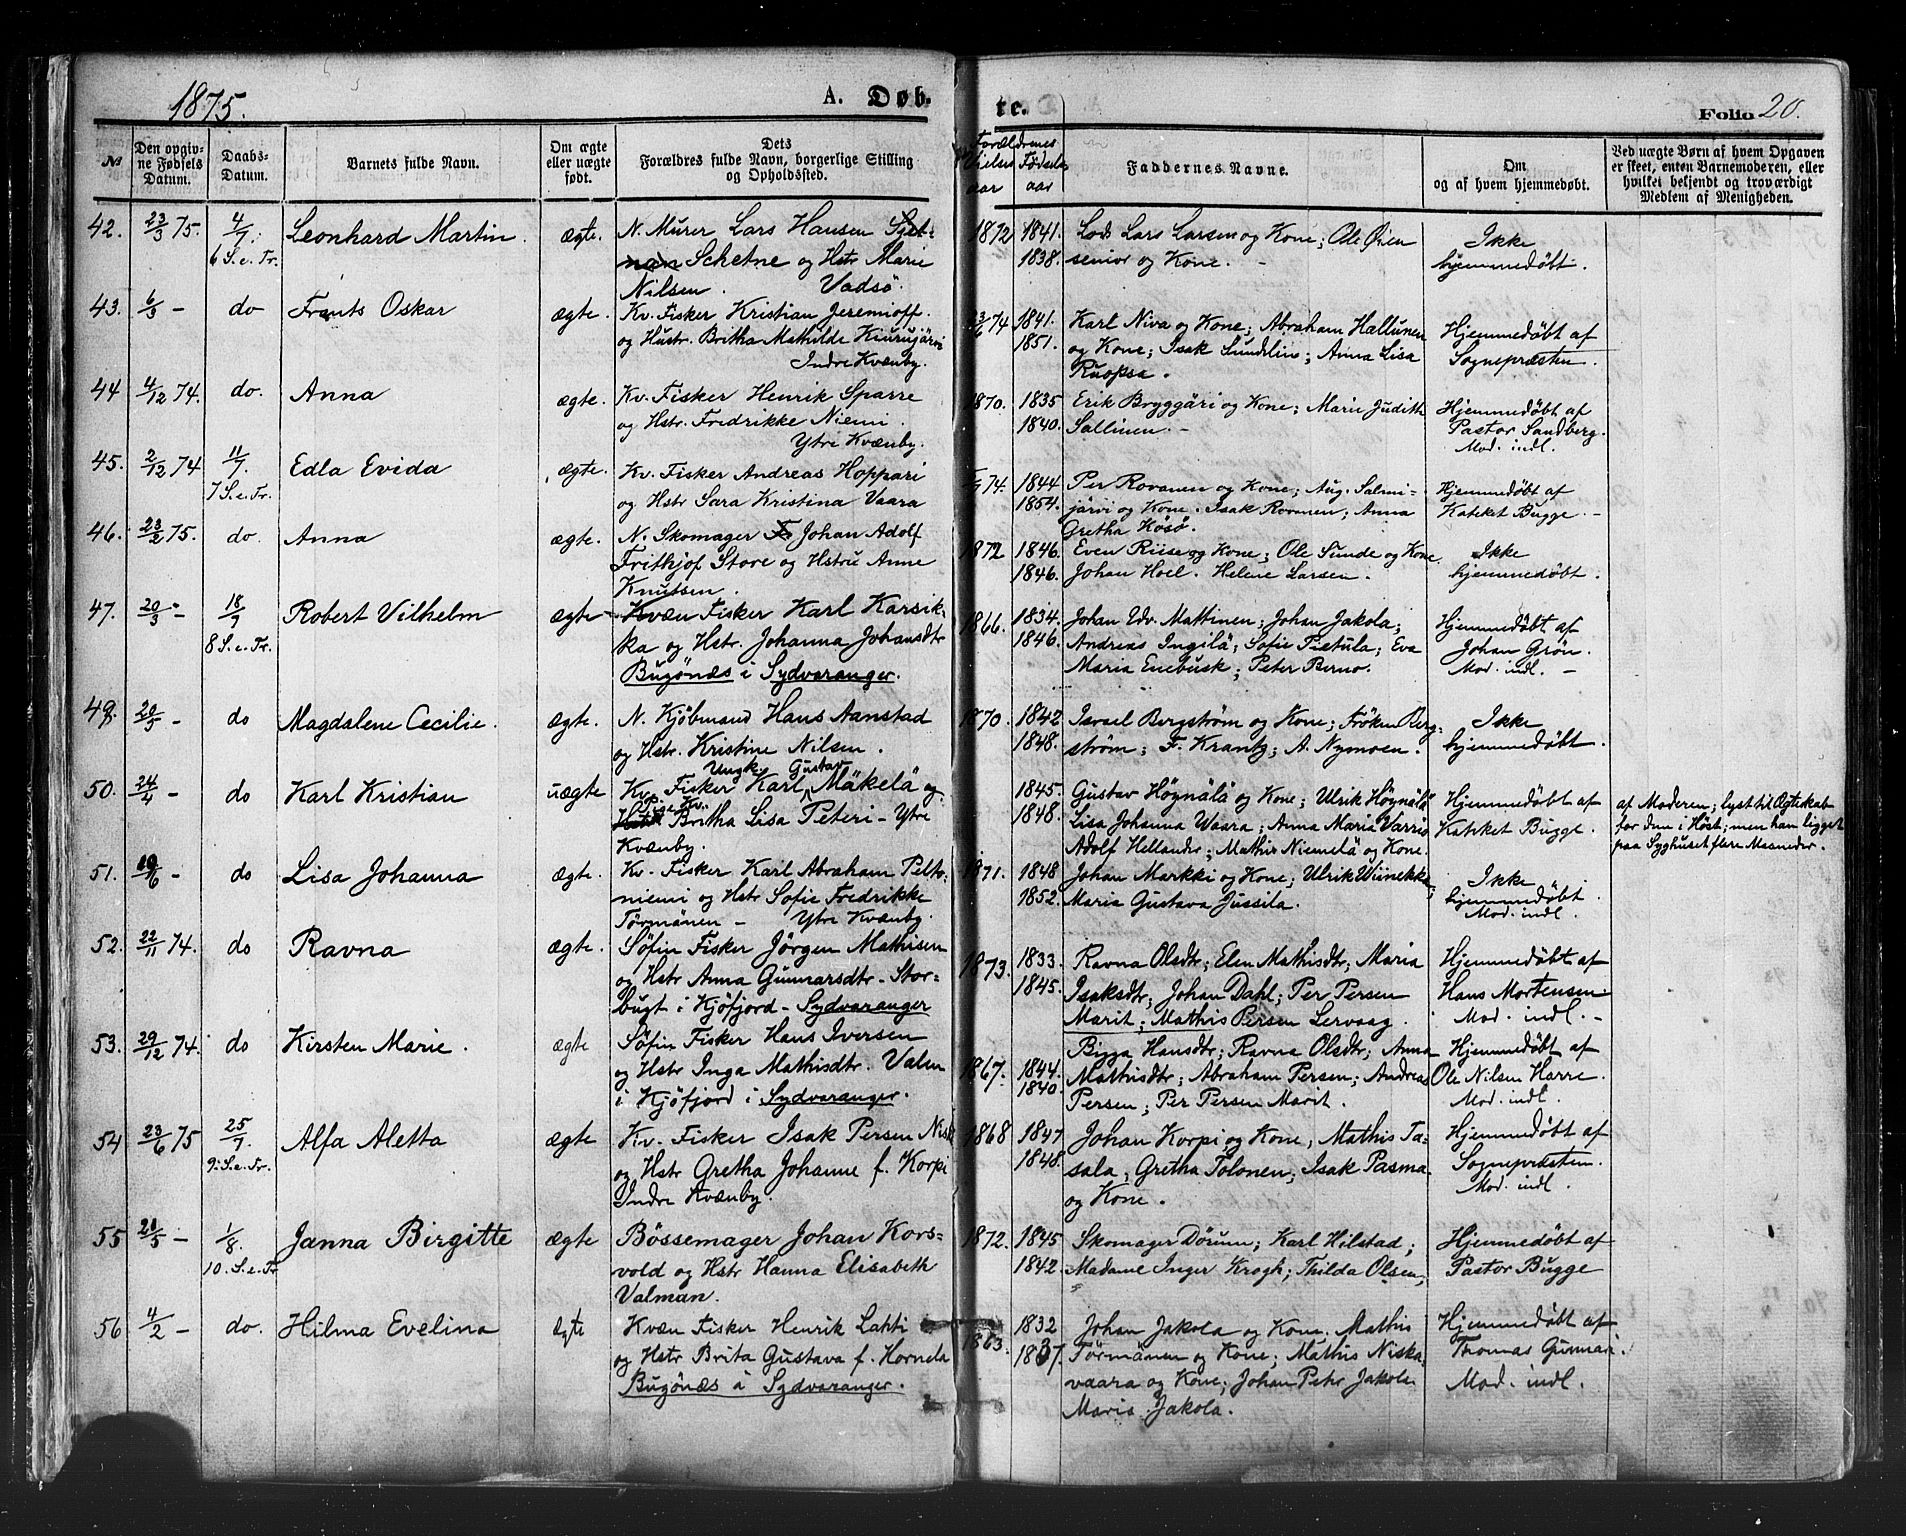 1875.
A. Døb-
te.
Folio 20.
№
Den opgiv-
ne Fødsels
Datum.
Daabs-
Datum.
Barnets fulde Navn.
Om ægte
eller uægte
født.
Dets
Forældres fulde Navn, borgerlige Stilling
og Opholdssted.
Forældrenes
Vielses Fødsels
aar aar
Faddernes Navne.
Om
og af hvem hjemmedøbt.
Ved uægte Børn af hvem Opgaven
er skeet, enten Barnemoderen, eller
hvilket beljendt og troværdigt
Medlem af Menigheden.
42. 23/3 75. 4/7. Leonhard Martin. ægte. N. Murer Lars Hansen
6 S. e. Tr. Schetne og Hstr Marie
Nilsen. Vadsö.
1872 1841. Lods Lars Larsen og Kone; Ole Öien
1838. senior og Kone. -
Ikke
hjemmedøbt.
43. 6/3 - do Frants Oskar ægte. Kv. Fisker Kristian Jeremioff.
og Hustr. Britha Mathilde Kiurujärvi
Indre Kvænby.
74 1841. Karl Niva og Kone; Abraham Hallunen
1851. og Kone; Isak Sundelin; Anna Lisa
Ruopsa.
Hjemmedøbt af
Sognepræsten.
44 4/12 74. do. Anna ægte. Kv. Fisker Henrik Sparre
og Hstr. Fredrikke Niemi.
Ytre Kvænby.
1870. 1835 Erik Bryggäri og Kone; Marie Judith
1840. Sallinen. -
Hjemmedøbt af
Pastor Sandberg.
Mod. indl.
45. 2/12 74 11/7 Edla Evida ægte. Kv. Fisker Andreas Hoppari
7 S. e. Tr. og Hstr Sara Kristina Vaara
74. 1844 Per Rovanen og Kone; Aug. Salmi-
1854. järvi og Kone. Isak Rovanen; Anna
Gretha Kösö.
Hjemmedøbt af
Kateket Bugge. -
46. 23/2 75. do. Anna ægte. N. Skomager Johan Adolf
Frithjof Store og Hstru Anne
Knutsen.
1872 1846. Even Riise og Kone; Ole Sunde og Kone
1846. Johan Hoel. Helene Larsen.
Ikke
hjemmedøbt.
47. 20/3 - 18/7 Robert Vilhelm ægte Kvæn Fisker Karl Karsik-
8 S. e. Tr. ka og Hstr. Johanna Johansdtr
Bugönæs i Sydvaranger.
1866. 1834. Johan Edv. Mattinen; Johan Jakola;
1846. Andreas Ingilä; Sofie Pistula; Eva
Maria Enebusk; Peter Berno.
Hjemmedøbt af
Johan Grön.
Mod. indl. -
49. 20/5 - do Magdalene Cecilie. ægte. N. Kjöbmand Hans Aanstad
og Hstr. Kristine Nilsen.
1870. 1842 Israel Bergström og Kone; Fröken Berg-
1848. ström; F. Krantz; A. Nymoen.
Ikke
hjemmedøbt.
50. 24/4 - do Karl Kristian uægte Ungk. Gustav
Kv. Fisker Karl Mäkelä og
Pige Kv. Britha Lisa Peteri - Ytre
Kvænby.
1845. Gustav Höynälä og Kone; Ulrik Höynälä
1848. Lisa Johanna Waara; Anna Maria Varrio
Adolf Hellander; Mathis Niemelä og Kone.
Hjemmedøbt af
Kateket Bugge.
af Moderen; lyst til Ægteskab
for dem i Höst; men han ligget
paa Syghuset flere Maaneder.
51. /6 - do Lisa Johanna ægte. Kv. Fisker Karl Abraham Pelto-
niemi og Hstr Sofie Fredrikke
Törmänen - Ytre Kvænby.
1871. 1848 Johan Markki og Kone; Ulrik Wiinekka;
1852. Maria Gustava Jussila.
Ikke
hjemmedøbt.
Mod. indl.
52. 22/11 74. do Ravna ægte. Söfin Fisker Jörgen Mathisen
og Hstr Anna Gunnarsdtr - Stor-
bugt i Kjöfjord - Sydvaranger
1873. 1833. Ravna Olsdtr; Elen Mathisdtr; Maria
1845. Isaksdtr; Johan Dahl; Per Persen
Marit; Mathis Persen Lervaag.
Hjemmedøbt af
Hans Mortensen
Mod. indl. -
53. 29/12 74. do Kirsten Marie. ægte Söfin Fisker Hans Iversen
og Hstr Inga Mathisdtr. Valen
i Kjöfjord i Sydvaranger.
1867. 1844. Bigga Hansdtr; Ravna Olsdtr; Anna
1840. Mathisdtr; Abraham Persen; Andreas
Persen; Per Persen Marit.
Hjemmedøbt af
Ole Nilsen Harre.
Mod. indl.
54 23/6 75 25/7. Alfa Aletta ægte Kv. Fisker Isak Persen
9. S. e. Tr. og Hstr Gretha Johanne f. Korpi
Indre Kvænby.
1868 1847 Johan Korpi og Kone, Mathis Ta-
1848. sala; Gretha Tolonen; Isak Pasma
og Kone.
Hjemmedøbt af
Sognepræsten.
Mod. indl.
55 21/5 - 1/8. Janna Birgitte ægte Bössemager Johan Kors-
10. S. e. Tr vold og Hstr Hanna Elisabeth
Valman.
1872. 1845 Skomager Dörum; Karl Hilstad;
1842. Madame Inger Krogh; Thilda Olsen,
Hjemmedøbt af
Pastor Bugge
56 4/2 - do. Hilma Evelina ægte Kvæn Fisker Henrik Lahti
og Hstr Brita Gustava f. Hornela
Bugönæs i Sydvaranger.
1863. 1832 Johan Jakola og Kone. Mathis
1837. Törmänen og Kone; Mathis Niska-
vaara og Kone; Johan Petr Jakola
Maria Jakola.
Hjemmedøbt af
Thomas Gunnari.
Mod. indl.